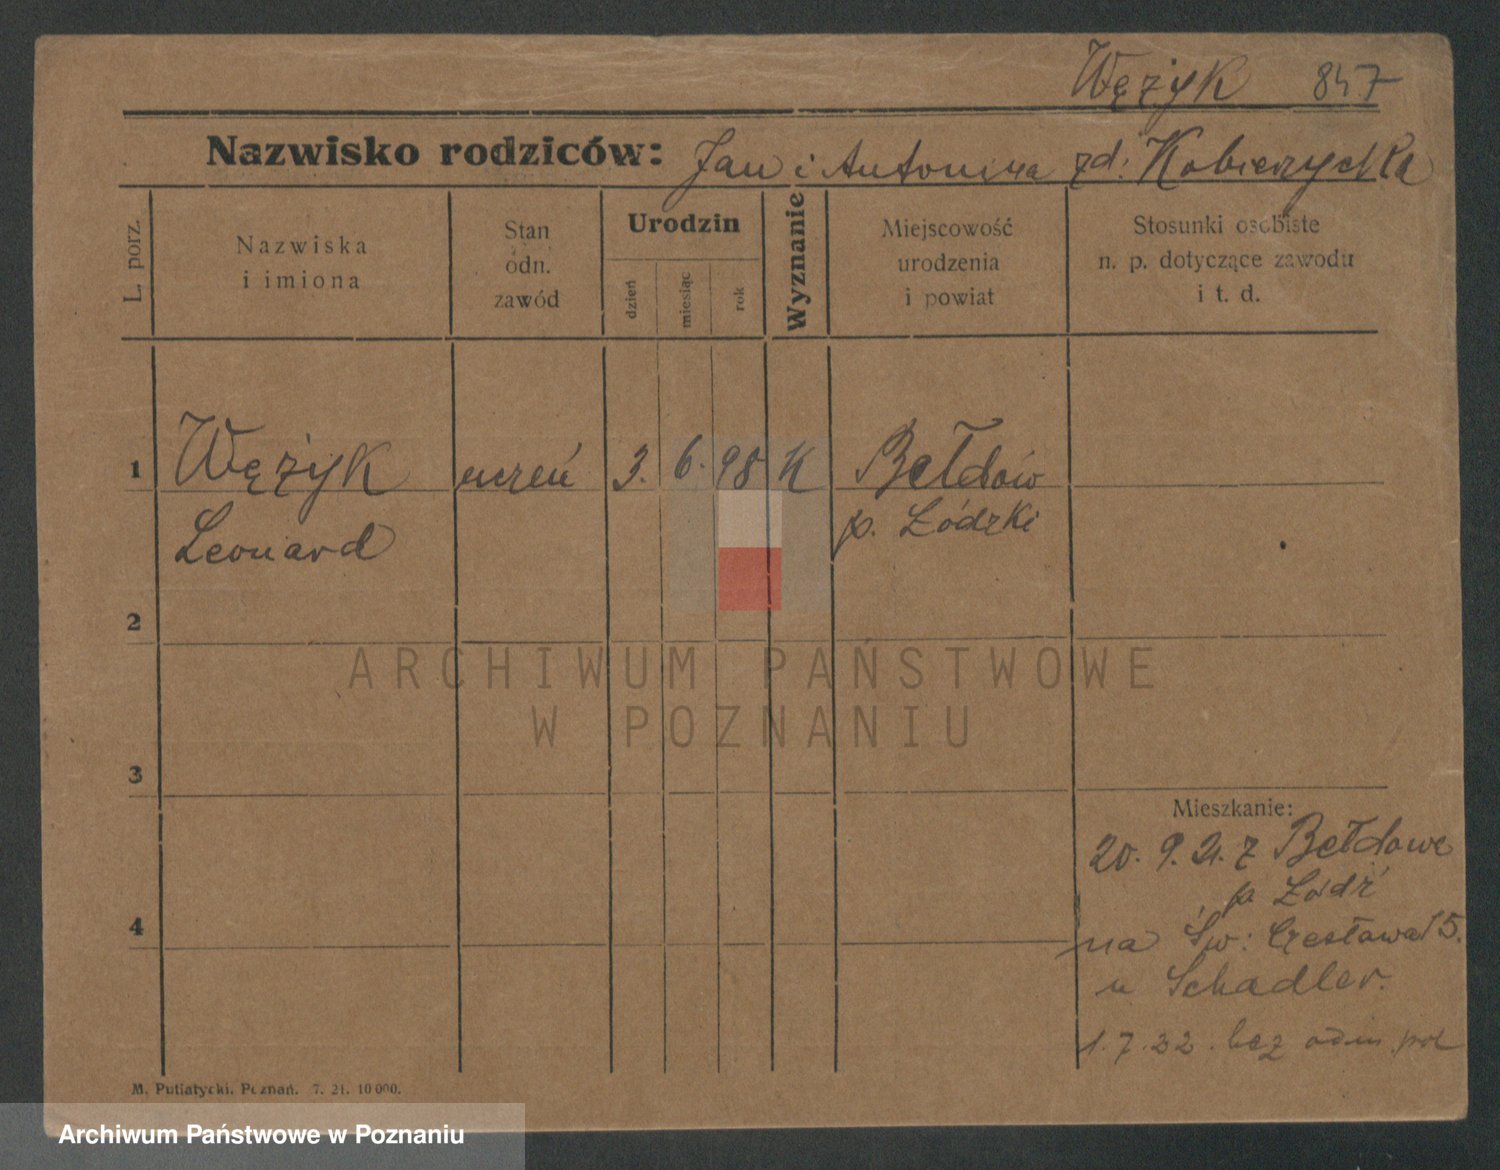 Wężyk 847
Nazwisko rodziców: Jan i Antonina zd: Kobierzycka
L. porz.
Nazwiska
i imiona
Stan
odn.
zawód
Urodzin
dzień
miesiąc
rok
Wyznanie
Miejscowość
urodzenia
i powiat
Stosunki osobiste
n. p. dotyczące zawodu
i t. d.
1 Wężyk uczeń 3. 6. 98 K Bełdów
Leonard p. Łódzki
2
ARCHIWUM PAŃSTWOWE
W POZNANIU
3
Mieszkanie:
20. 9. 21. z Bełdowe
p Łódź
4
na Św: Czesława 15.
u Schadler.
1.7.22. bez odm.
M. Putiatycki, Poznań. 7. 21. 10 000.
Archiwum Państwowe w Poznaniu